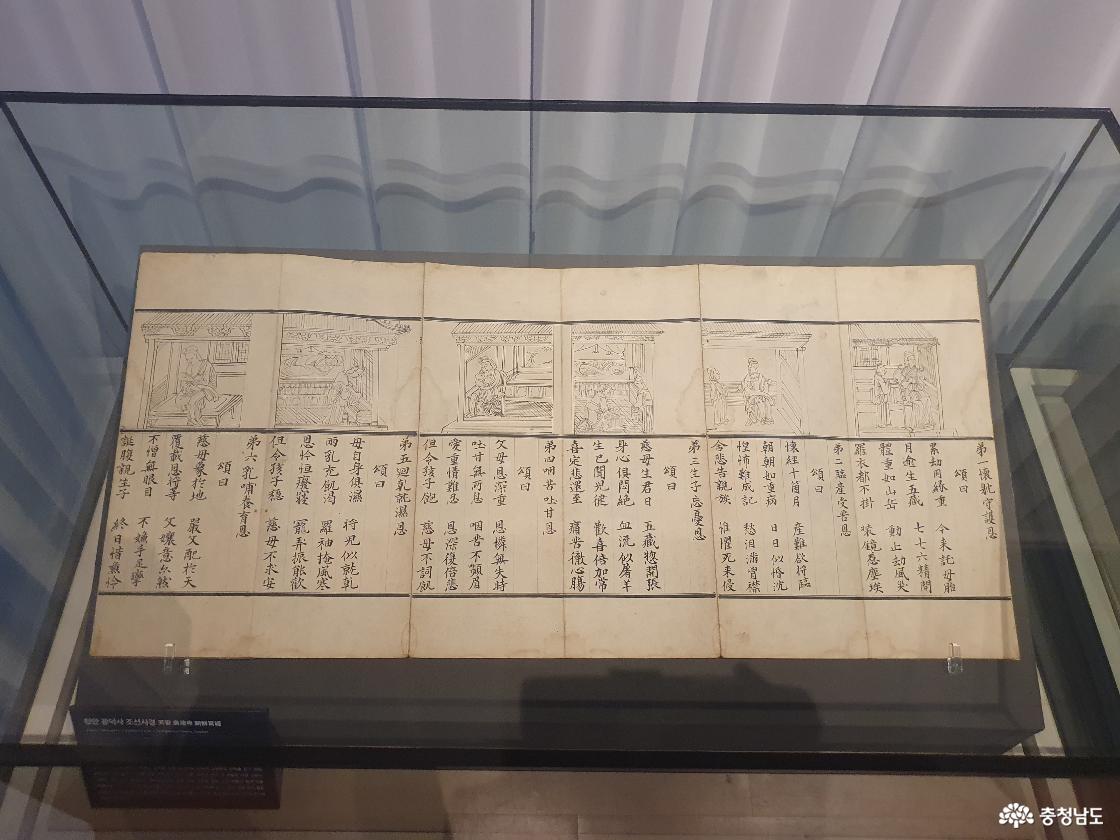 第一懷躭守護恩
頌曰
累劫因緣重 今来託母胎
月逾生五臟 七七六精開
體重如山岳 動止劫風灾
羅衣都不掛 裝鏡惹塵埃
第二臨産受苦恩
頌曰
懷經十箇月 産難欲將臨
朝朝如重病 日日似惛沉
惶怖難成記 愁淚滿胷襟
含悲告親族 惟懼死来侵
第三生子忘憂恩
頌曰
慈母生君日 五臟惣開張
身心俱悶絶 血流似屠羊
生已聞兒健 歡喜倍加常
喜定悲還至 痛苦徹心膓
第四咽苦吐甘恩
頌曰
父母恩深重 恩憐無失時
吐甘無所息 咽苦不嚬眉
愛重情難忍 恩深復倍悲
但令孩子飽 慈母不詞飢
第五廻乾就濕恩
頌曰
母自身俱濕 將兒似就乾
兩乳充飢渴 羅袖掩風寒
恩怜恒廢寢 寵弄振能歡
但令孩子穩 慈母不求安
第六乳哺養育恩
頌曰
慈母象於地 嚴父配於天
覆載恩將等 父孃意亦然
不憎無眼目 不嫌手足攣
誕腹親生子 終日惜兼怜
천안 광덕사 조선사경 天安 廣德寺 朝鮮寫經
충청남도